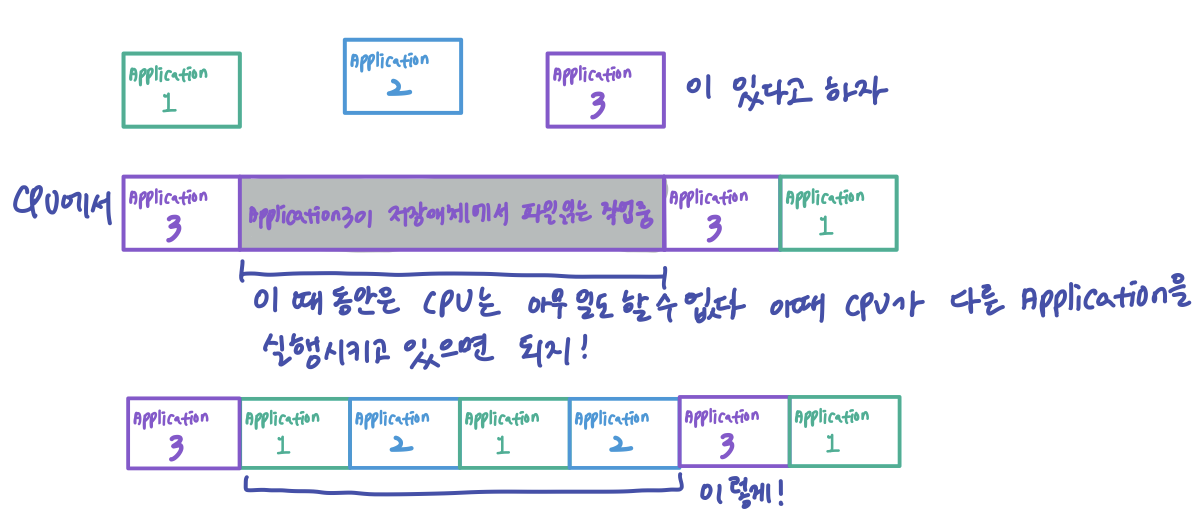 Application 1
Application 2
Application 3
이 있다고 하자
CPU에서
Application 3
Application3이 저장매체에서 파일읽는 작업중
Application 3
Application 1
이 때 동안은 CPU는 아무 일도 할 수 없다 이때 CPU가 다른 Application을
실행시키고 있으면 되지!
Application 3
Application 1
Application 2
Application 1
Application 2
Application 3
Application 1
이렇게!